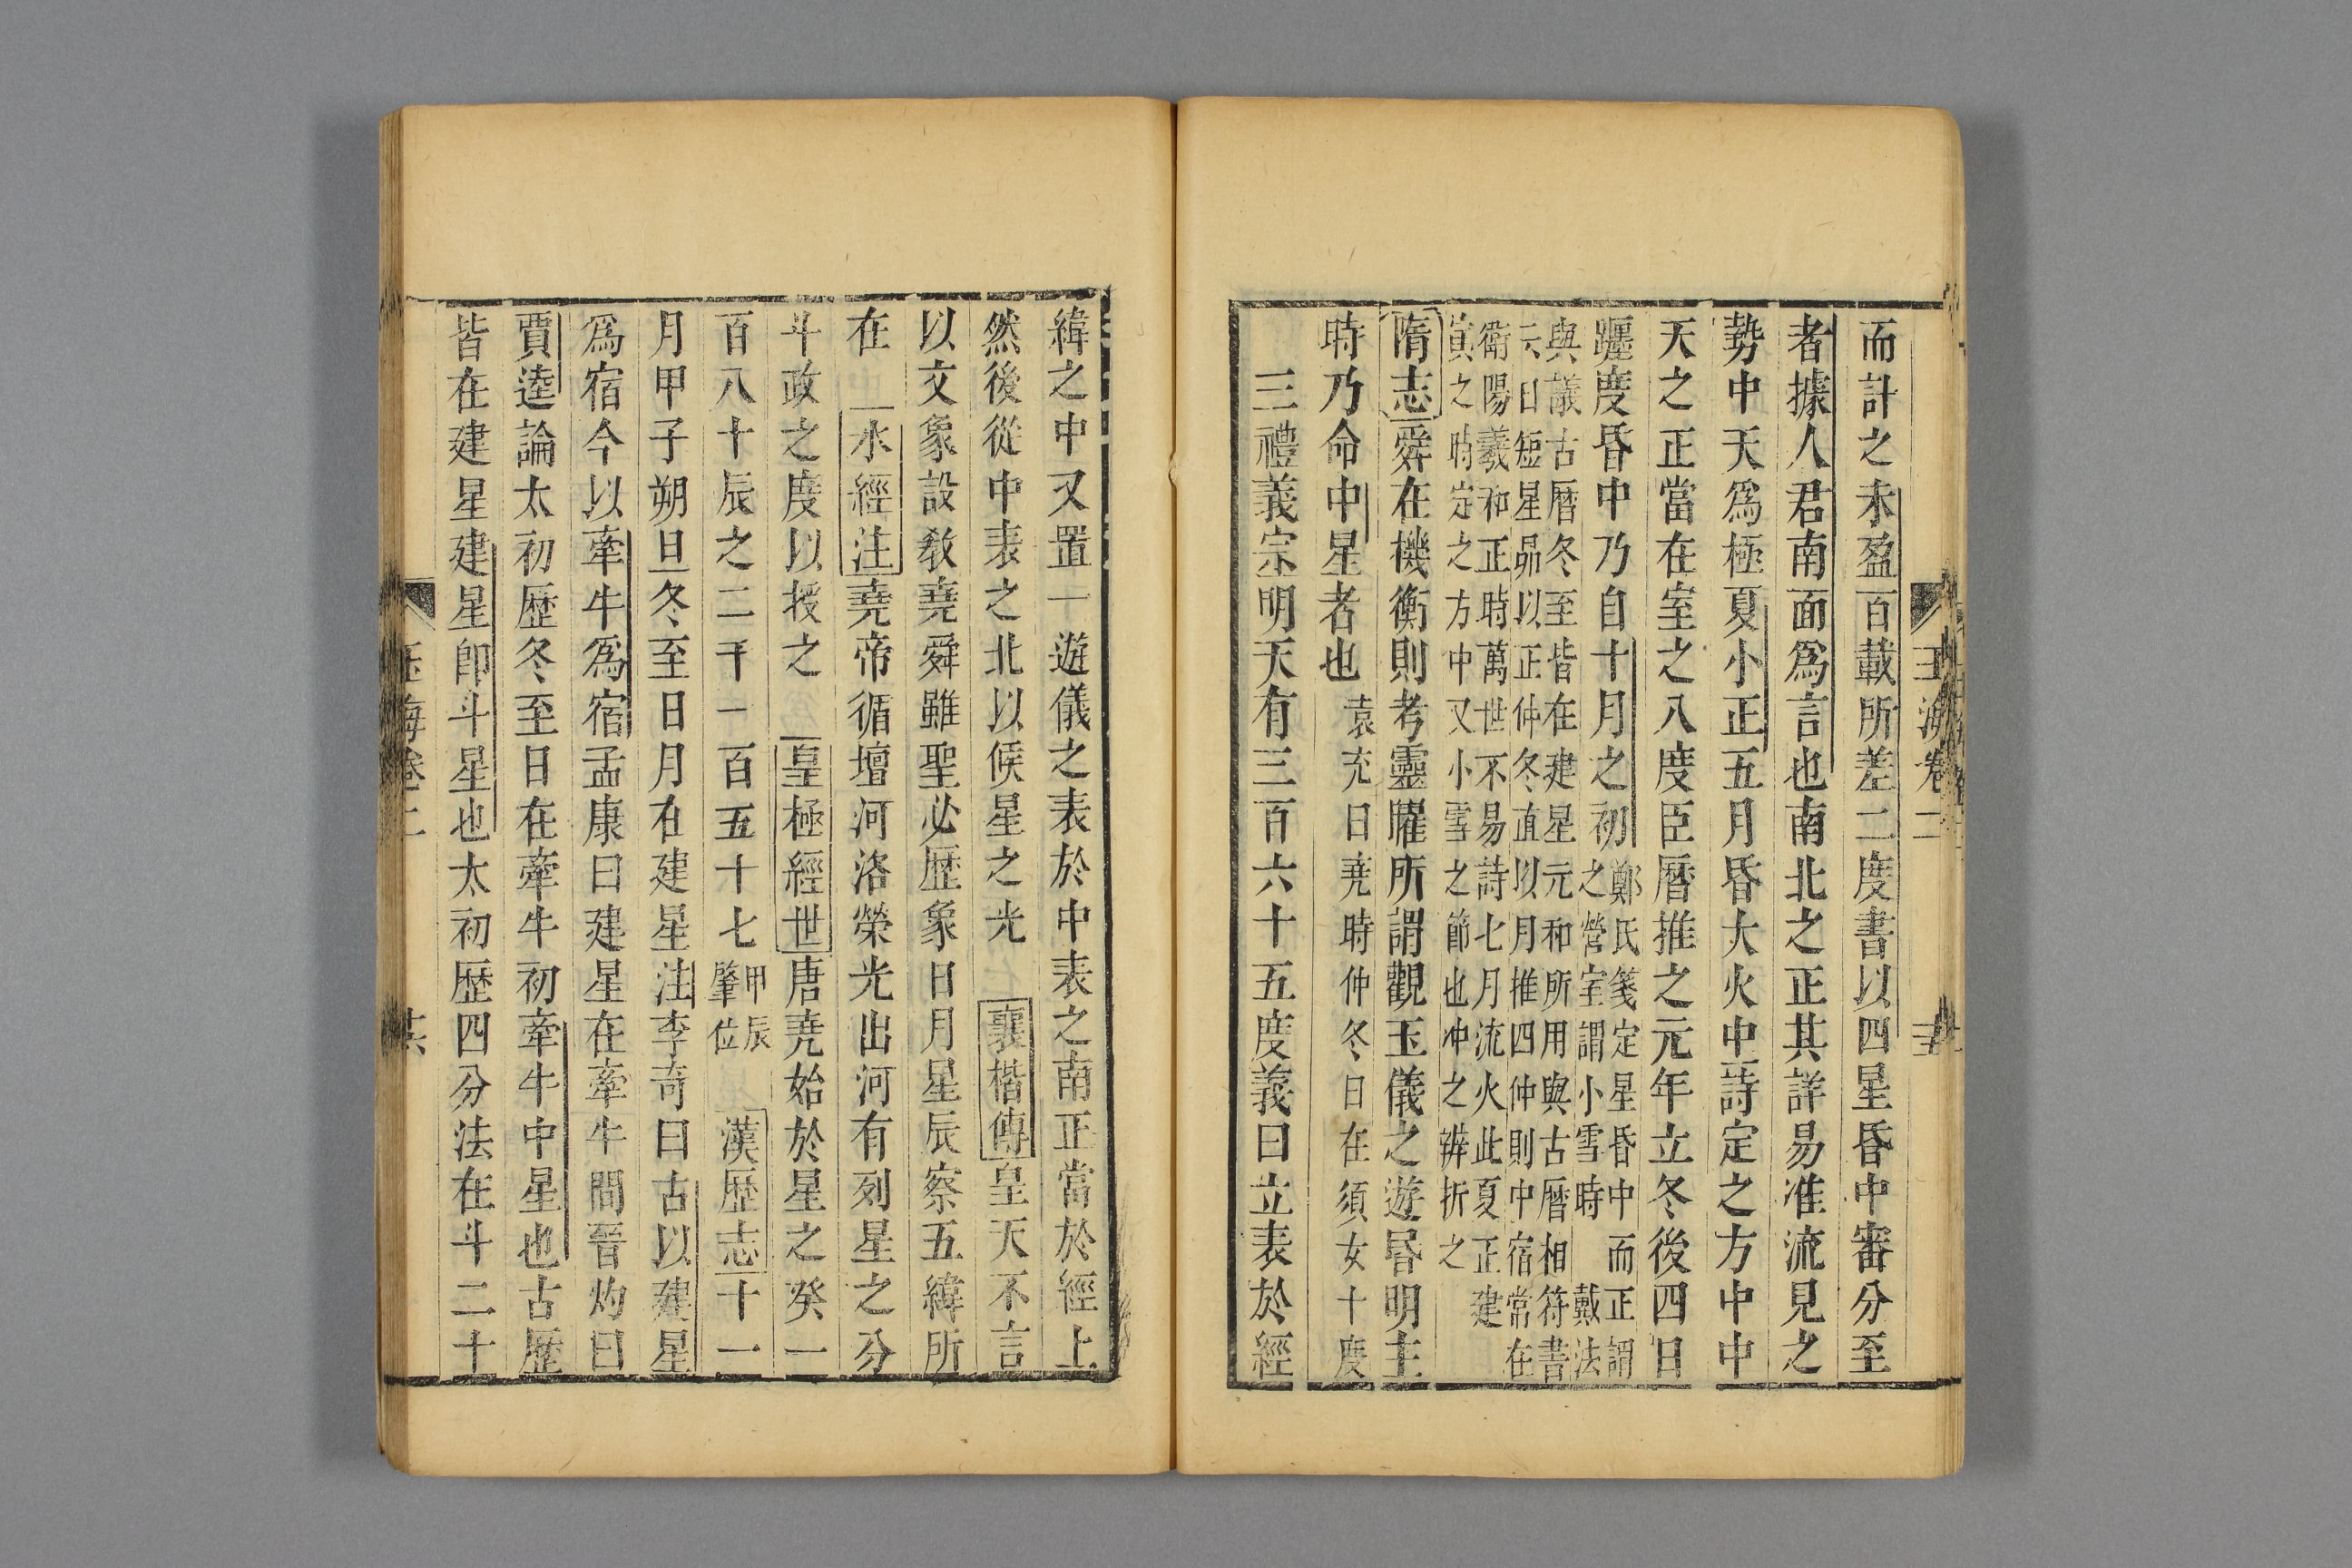 玉海卷二
而計之未盈百載所差二度書以四星昏中審分至
者據人君南面爲言也南北之正其詳易准流見之
勢中天爲極夏小正五月昏大火中詩定之方中中
天之正當在室之八度臣曆推之元年立冬後四日
躔度昏中乃自十月之初
鄭氏箋定星昏中而正謂
之營室謂小雪時 戴法
與議古曆冬至皆在建星元和所用與古曆相符書
云日短星昴以正仲冬直以月推四仲則中宿常在
衛陽羲和正時萬世不易詩七月流火此夏正建
寅之時定之方中又小雪之節也冲之辨折之
隋志舜在機衡則考靈曜所謂觀玉儀之遊昏明主
時乃命中星者也袁充日堯時仲冬日在須女十度
三禮義宗明天有三百六十五度義曰立表於經
緯之中又置一遊儀之表於中表之南正當於經上
然後從中表之北以候星之光 襄楷傳皇天不言
以文象設教堯舜雖聖必歷象日月星辰察五緯所
在 水經注堯帝循壇河洛榮光出河有列星之分
斗政之度以授之 皇極經世唐堯始於星之癸一
百八十辰之二千一百五十七
甲辰
肇位
漢歷志十一
月甲子朔旦冬至日月在建星注李奇曰古以建星
爲宿今以牽牛爲宿孟康曰建星在牽牛間晉灼曰
賈逵論太初歷冬至日在牽牛初牽牛中星也古歷
皆在建星建星卽斗星也太初歷四分法在斗二十
玉海卷二